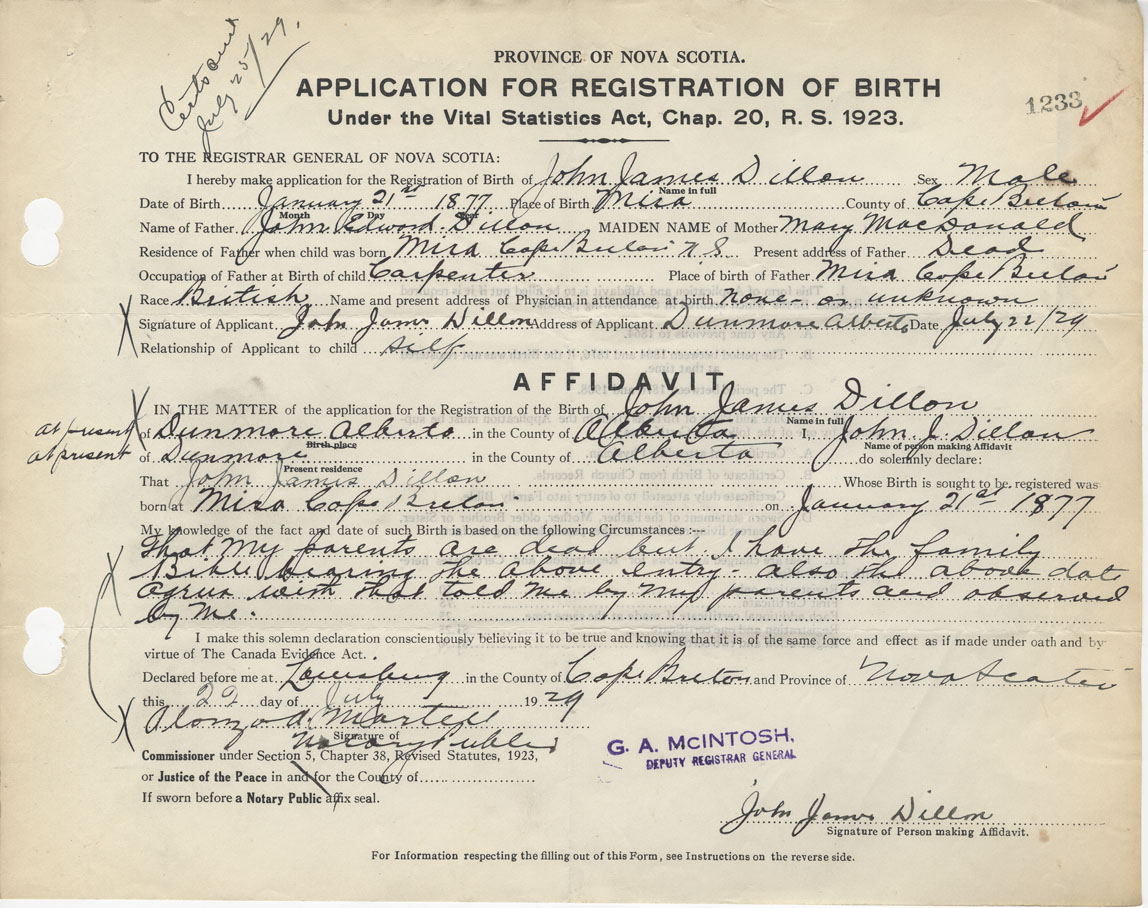 Cert sent
July 25/29.
PROVINCE OF NOVA SCOTIA.
APPLICATION FOR REGISTRATION OF BIRTH
1233
Under the Vital Statistics Act, Chap. 20, R. S. 1923.
TO THE REGISTRAR GENERAL OF NOVA SCOTIA:
I hereby make application for the Registration of Birth of John James Dillon Sex Male
Name in full
Date of Birth January 21st 1877 Place of Birth Mira County of Cape Breton
Month Day Year
Name of Father John Edward Dillon MAIDEN NAME of Mother Mary MacDonald
Residence of Father when child was born Mira Cape Breton N.S. Present address of Father Dead
Occupation of Father at Birth of child Carpenter Place of birth of Father Mira Cape Breton
Race British Name and present address of Physician in attendance at birth none - or unknown
X Signature of Applicant John James Dillon Address of Applicant Dunmore Alberta Date July 22/29
Relationship of Applicant to child self
AFFIDAVIT
X IN THE MATTER of the application for the Registration of the Birth of John James Dillon
Name in full
at present of Dunmore Alberta in the County of Alberta I, John J. Dillon
Birth place Name of person making Affidavit
at present of Dunmore in the County of Alberta do solemnly declare:
Present residence
That John James Dillon Whose Birth is sought to be registered was
born at Mira Cape Breton on January 21st 1877
My knowledge of the fact and date of such Birth is based on the following Circumstances:—
X That my parents are dead but I have the family
Bible bearing the above entry. also the above date
agrees with that told me by my parents and observed
by me.
I make this solemn declaration conscientiously believing it to be true and knowing that it is of the same force and effect as if made under oath and by
virtue of The Canada Evidence Act.
Declared before me at Louisburg in the County of Cape Breton and Province of Nova Scotia
this 22 day of July 1929
X Alonzo A. Martell
Signature of
Notary Public
Commissioner under Section 5, Chapter 38, Revised Statutes, 1923,
or Justice of the Peace in and for the County of
If sworn before a Notary Public affix seal.
G. A. McINTOSH,
DEPUTY REGISTRAR GENERAL
John James Dillon
Signature of Person making Affidavit.
For Information respecting the filling out of this Form, see Instructions on the reverse side.